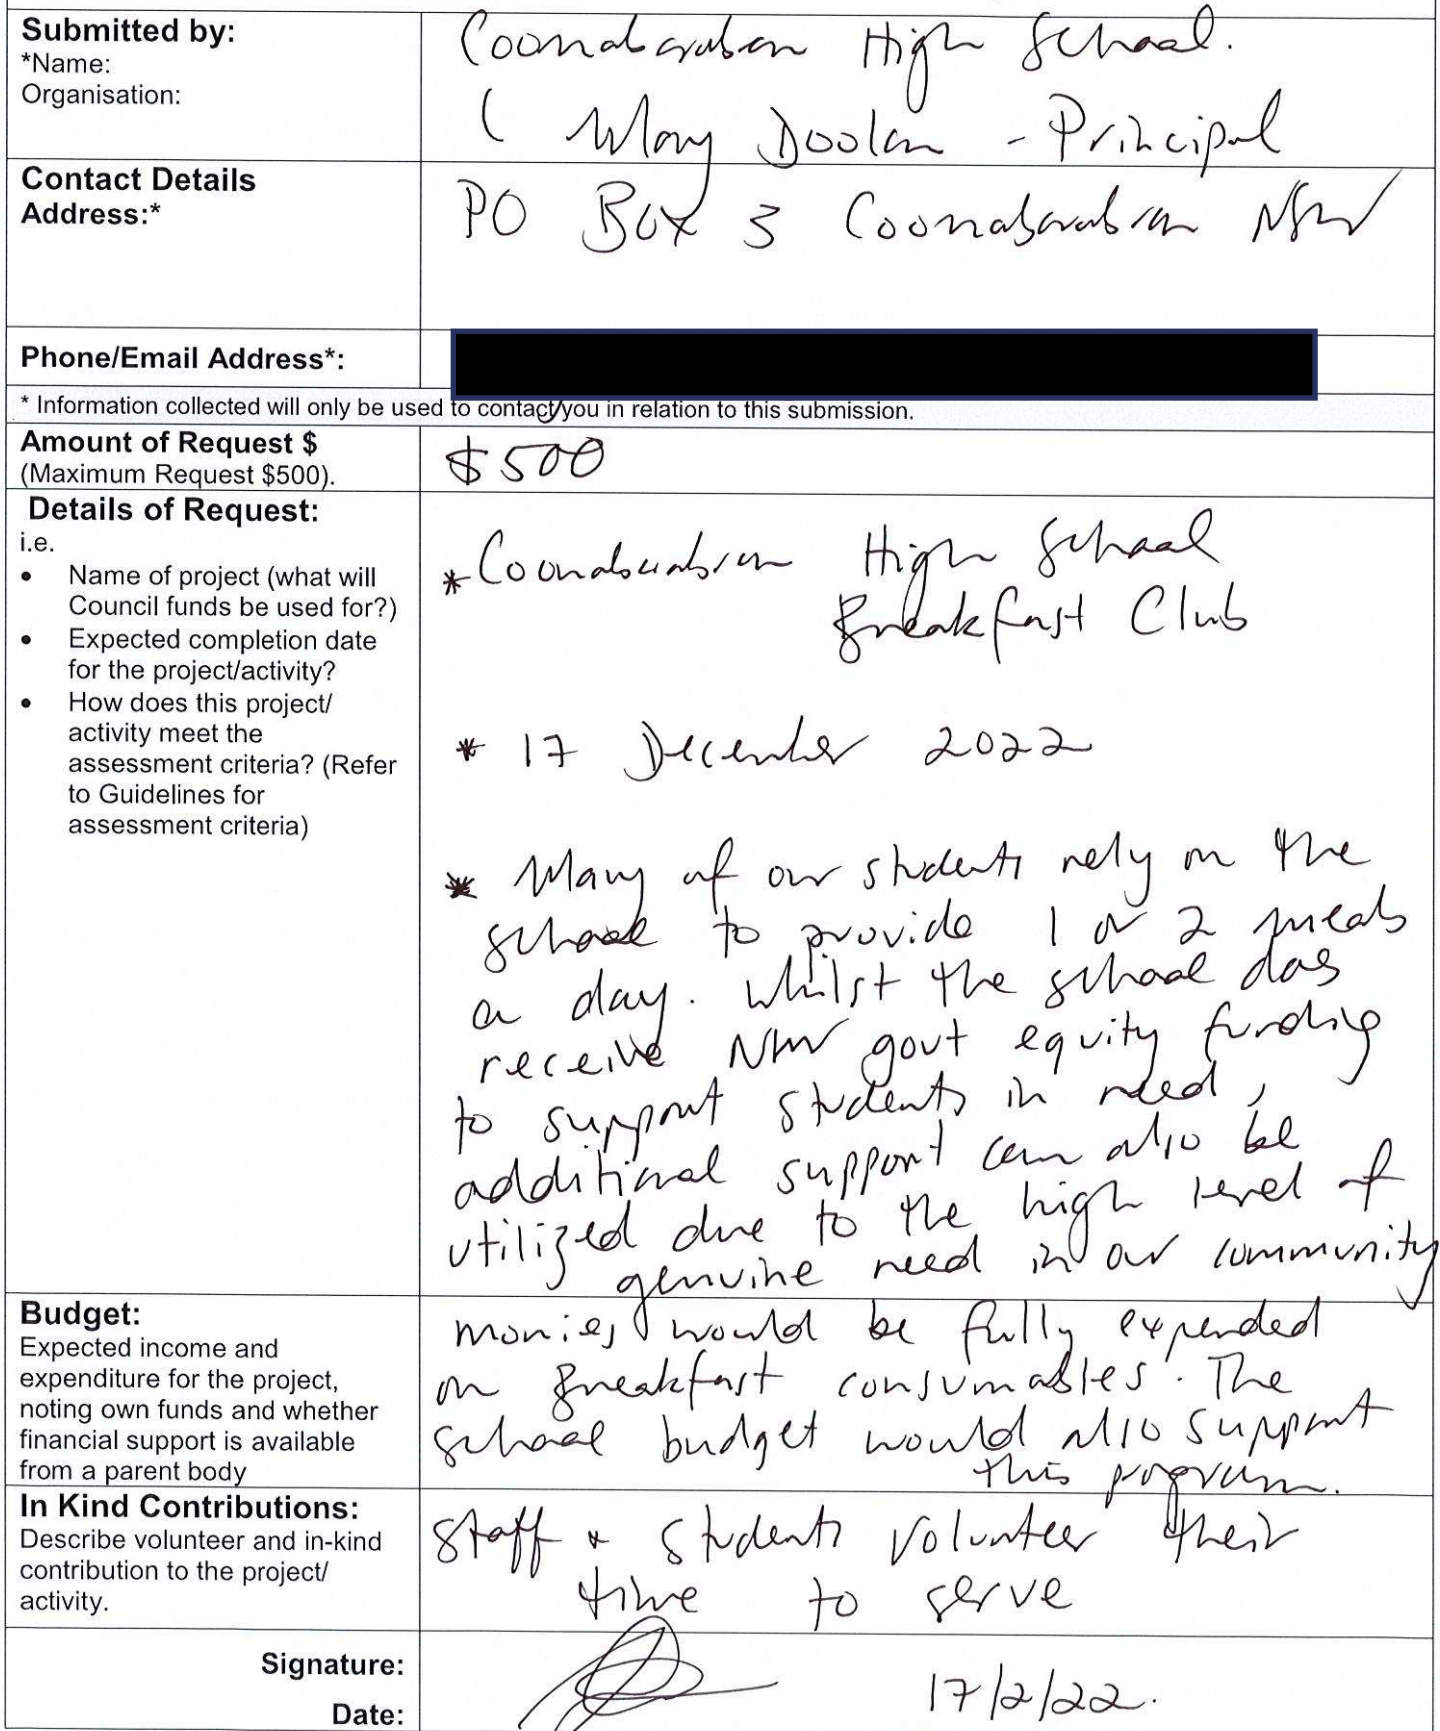 Submitted by:
*Name:
Organisation:
Coonabarabran High School.
( Mary Doolan - Principal
Contact Details
Address:*
PO Box 3 Coonabarabran NSW
Phone/Email Address*:
* Information collected will only be used to contact you in relation to this submission.
Amount of Request $
(Maximum Request $500).
$500
Details of Request:
i.e.
• Name of project (what will
Council funds be used for?)
• Expected completion date
for the project/activity?
• How does this project/
activity meet the
assessment criteria? (Refer
to Guidelines for
assessment criteria)
* Coonabarabran High School
Breakfast Club
* 17 December 2022
* Many of our students rely on the
school to provide 1 or 2 meals
a day. Whilst the school does
receive NSW govt equity funding
to support students in need,
additional support can also be
utilized due to the high level of
genuine need in our community
Budget:
Expected income and
expenditure for the project,
noting own funds and whether
financial support is available
from a parent body
monies would be fully expended
on Breakfast consumables. The
school budget would also support
this program.
In Kind Contributions:
Describe volunteer and in-kind
contribution to the project/
activity.
Staff + students volunteer their
time to serve
Signature:
Date:
17/2/22.